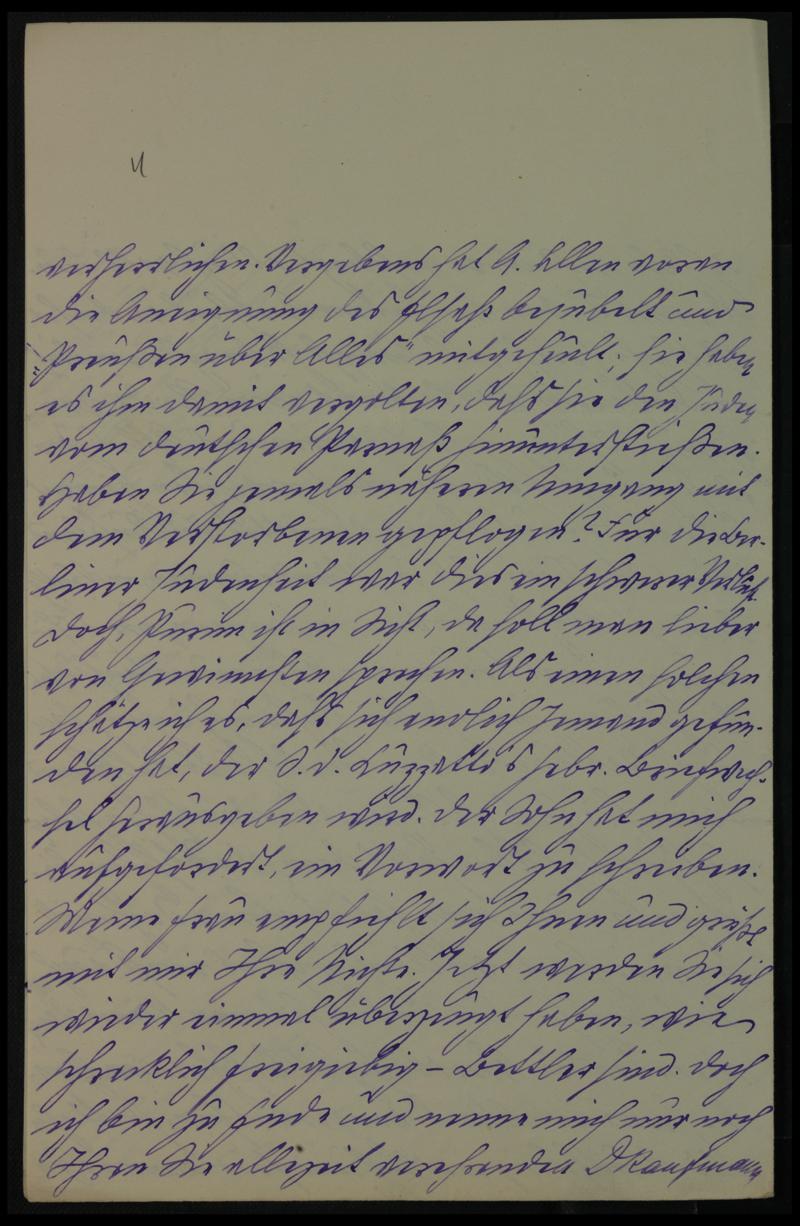 4
verherrlichen. Vergebens hat A. Allen voran
die Aneignung des Elsaß bejubelt und
„Preußen über Alles" mitgeheult; sie haben
es ihm damit vergolten, daß sie den Juden
vom deutschen Parnaß hinunterstießen.
Haben Sie jemals näheren Umgang mit
dem Verstorbenen gepflogen? Für die Ber-
liner Judenheit war dies ein schwerer Verlust.
Doch, Purim ist in Sicht, da soll man lieber
von Gewinnsten sprechen. Als einen solchen
schätze ich es, daß sich endlich Jemand gefun-
den hat, der S. D. Luzzatto's hebr. Briefwech-
sel herausgeben wird. Der Sohn hat mich
aufgefordert, ein Vorwort zu schreiben.
Meine Frau empfiehlt sich Ihnen und grüßt
mit mir Ihre Nichte. Jetzt werden Sie sich
wieder einmal überzeugt haben, wie
schrecklich freigiebig – Bettler sind. Doch
ich bin zu Ende und nenne mich nur noch
Ihren Sie allezeit verehrenden DKaufmann